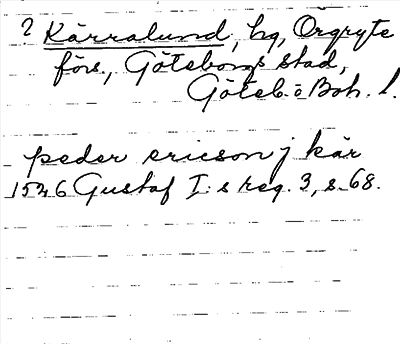 ? Kärralund, hg, Örgryte
förs., Göteborgs stad,
Göteb. o Boh. l.
peder ericson j kär
1526 Gustaf I:s reg. 3, s. 68.